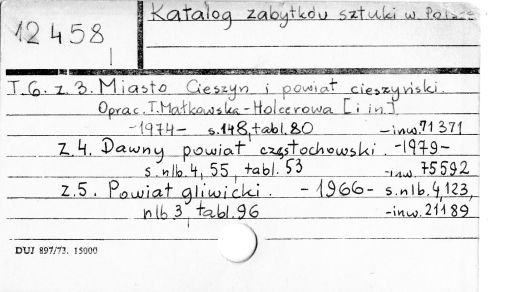 12458
Katalog zabytków sztuki w Polsce
T.6. z.3. Miasto Cieszyn i powiat cieszyński.
Oprac. T. Małkowska-Holcerowa [i in.]
-1974- s.148, tabl.80 -inw.71371
z.4. Dawny powiat częstochowski. -1979-
s.nlb.4, 55, tabl.53 -inw.75592
z.5. Powiat gliwicki. -1966- s.nlb.4,123,
nlb.3, tabl.96 -inw.21189
DUJ 897/73. 15000